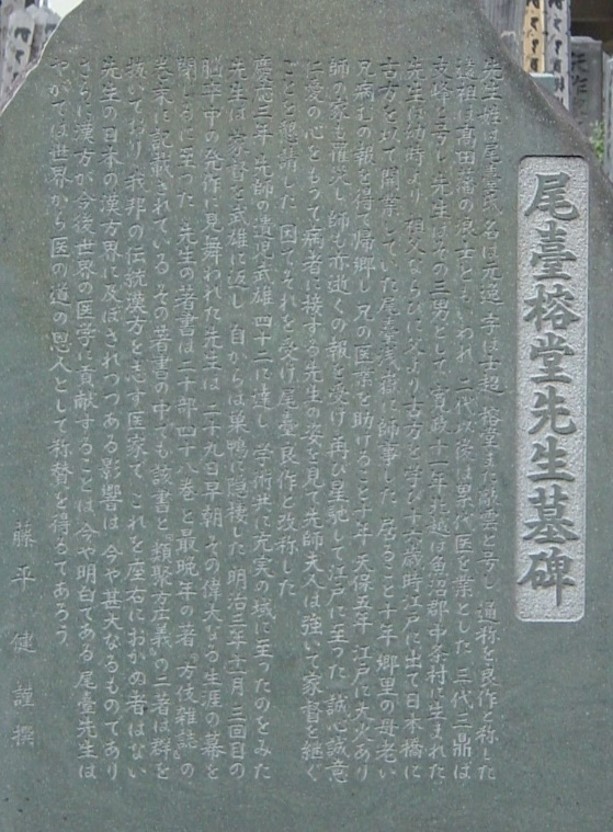 尾臺榕堂先生墓碑
先生姓は尾臺氏 名は元逸 字は士超 榕堂また敲雲と号し 通称を良作と称した
遠祖は髙田藩の浪士ともいわれ 二代以後は累代医を業とした 三代三鼎は
文峰と号し 先生はその三男として 寛政十一年北越は魚沼郡中条村に生まれた
先生は幼時より 祖父ならびに父より古方を学び十六歳時江戸に出て日本橋に
古方を以て開業していた尾臺浅嶽に師事した 居ること十年 郷里の母老い
兄病むの報を得て帰郷し 兄の医業を助けること十年 天保五年 江戸に大火あり
師の家も罹災し 師も亦逝くの報を受け 再び星馳して江戸に至った 誠心誠意
仁愛の心をもって病者に接する先生の姿を見て先師夫人は強いて家督を継ぐ
ことを懇請した 因てそれを受け尾臺良作と改称した
慶応三年 先師の遺児武雄 四十二に達し 学術共に充実の域に至ったのをみた
先生は 家督を武雄に返し 自からは巣鴨に隠棲した 明治三年十一月 三回目の
脳卒中の発作に見舞われた先生は 二十九日早朝 その偉大なる生涯の幕を
閉じるに至った 先生の著書は二十部四十八巻と最晩年の著『方伎雑誌』の
巻末に記載されている その著書の中でも該書と『類聚方広義』の二者は群を
抜いており 我邦の伝統漢方を志す医家で これを座右におかぬ者はない
先生の日本の漢方界に及ぼされつつある影響は 今や甚大なるものであり
さらに漢方が今後世界の医学に貢献することは 今や明白である 尾臺先生は
やがては世界から医の道の恩人として称賛を得るであろう
藤平 健 謹撰